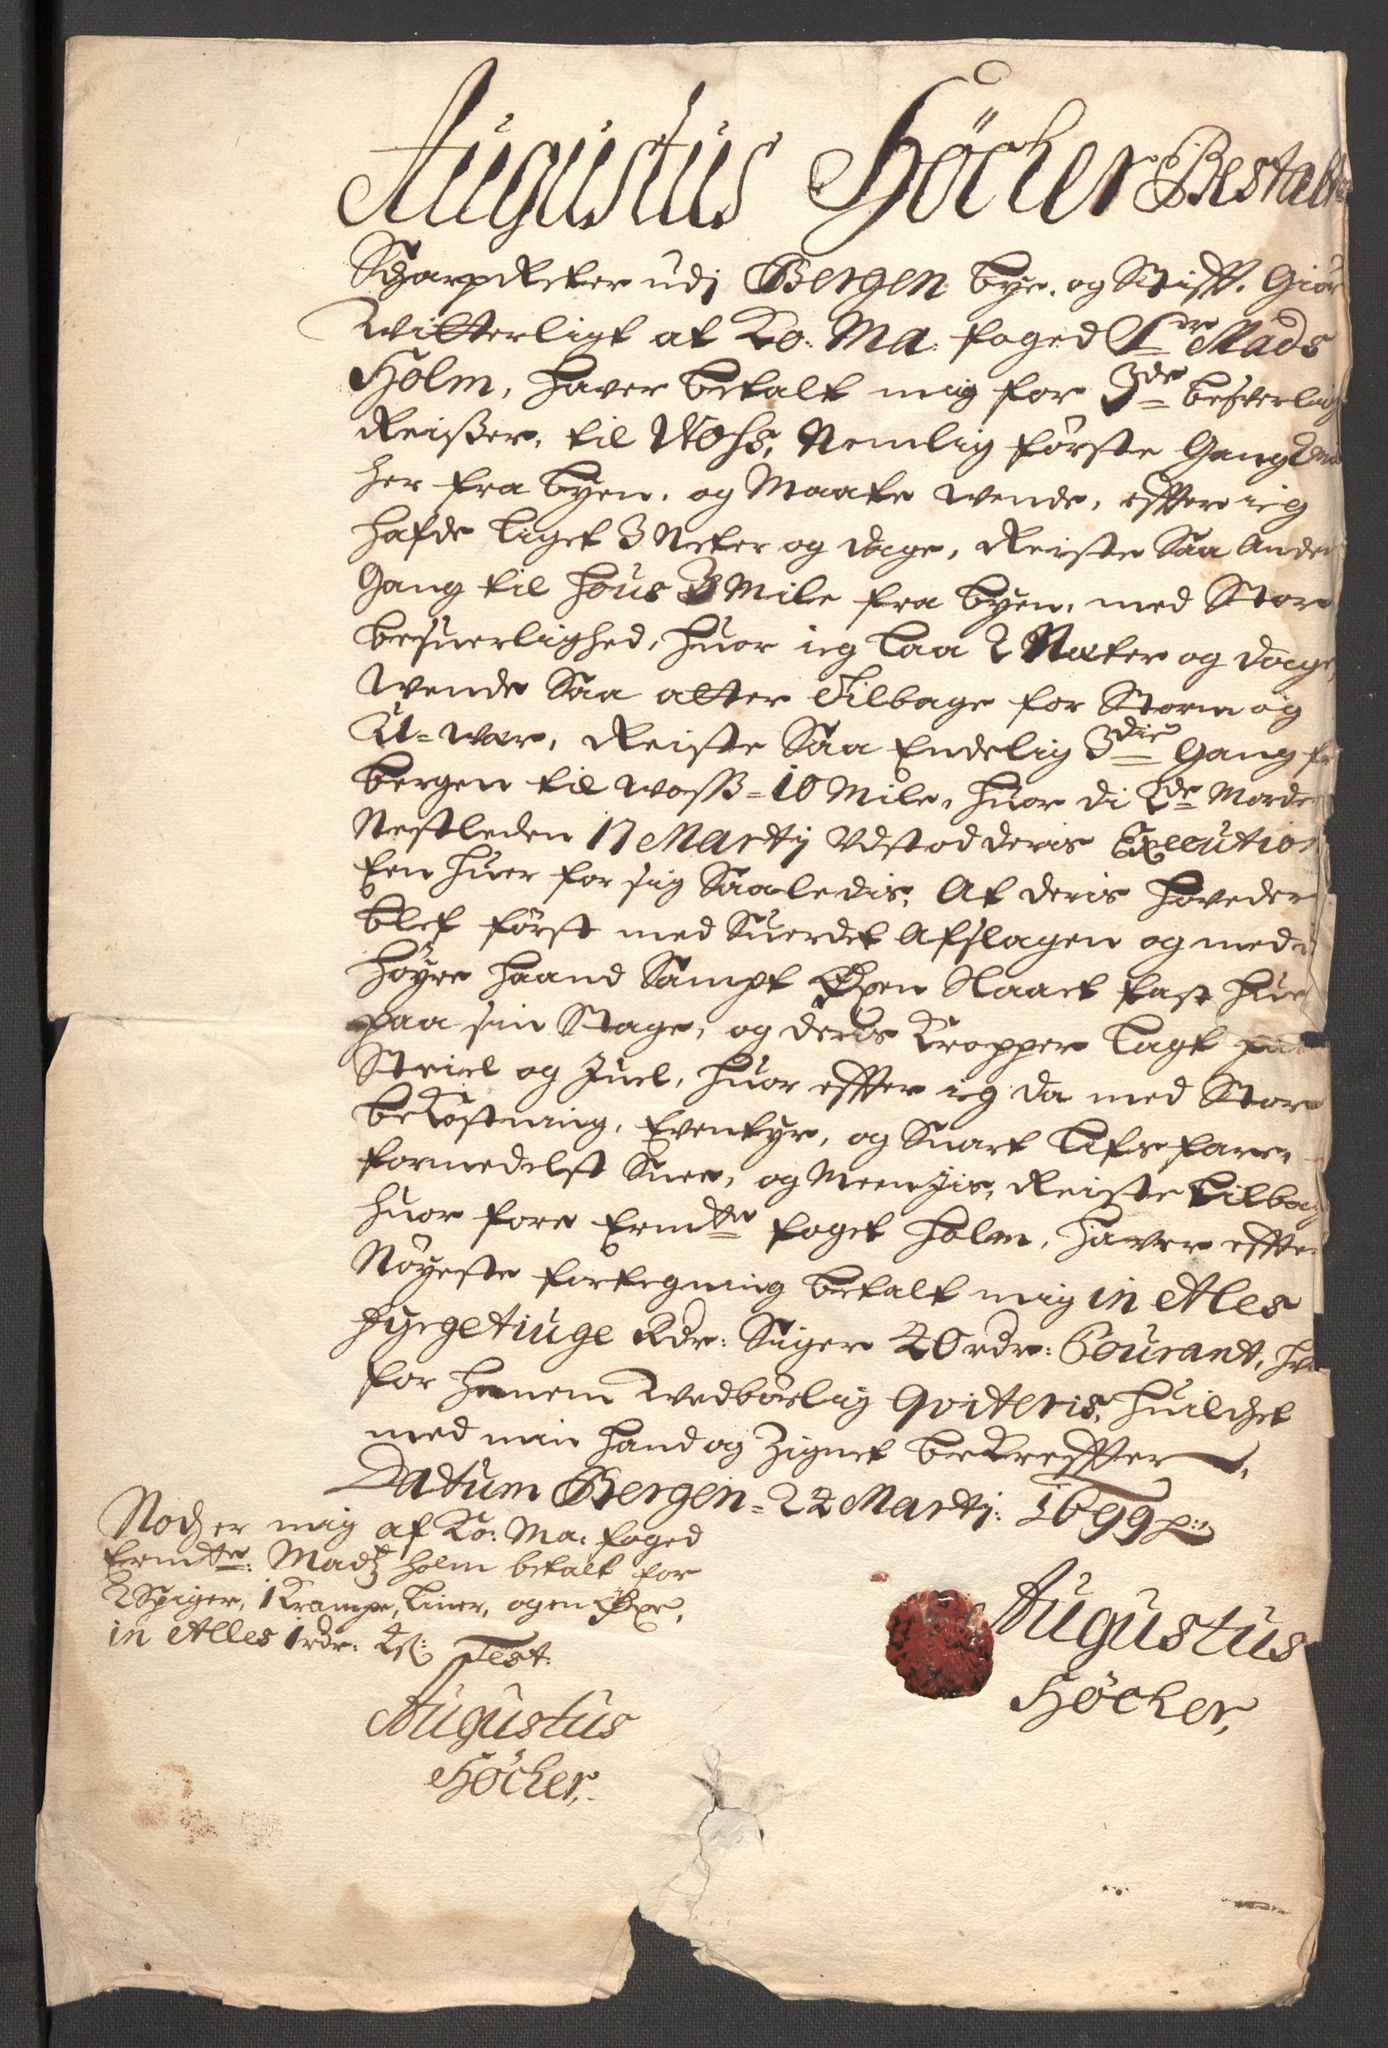 Augustus Höcher Bestalt
Scharpreter udj Bergen bye, og Stifft, Giör
Witterligt at Ko: Ma: foged Sr Mads
Holm, haver betalt mig for 3de besverlig
Reißer, til Woss, Nemlig förste Gang 2
her fra byen, og Maate wende, effter ieg
hafde liget 3 Neter og dage, Reiste Saa Anden
Gang til Hous 3 Mile fra byen, med Stor
besuerlighed, huor ieg laa 2 Næter og dage,
Wende Saa atter Tilbage for Storm og
U=wær, Reiste Saa Endelig 3die Gang fr
bergen til woss=10 Mile, huor di 2de Morder
Nestleden 17 Martij Udstod deris Execution
Een huer for sig Saaledis, At deris hoveder
blef först med Suerdet Afslagen og med d
höyre haand Sampt Öxen Slaaet fast huer
paa sin Stage, og deris Kropper lagt paa
Steiel og Juel, huor effter ieg da med Stor
bekostning, Eventyr, og Snart Lifs fare,
formedelst Snee, og Meen Jis, Reiste tilbag
huor fore Ermdte foget Holm, haver effter
Nöyeste fortegning betalt mig in Ales
fyrgetiuge Rdr: Siger 40 rdr: Courant, hvor
for hannem Wedbörlig Qviteris, huilchet
med min Hand og Zignet bekreffter,
Datum Bergen=22 Martj: 1699
Noch er mig af Ko: Ma: foged
Ermdte: Madz Holm betalt for
2 Spiger, 1 Krampe, Liner, og en Öxe,
in Alles 1 rdr: 4 s: Test:
Augustus
Höcher,
Augustus
Höcher,